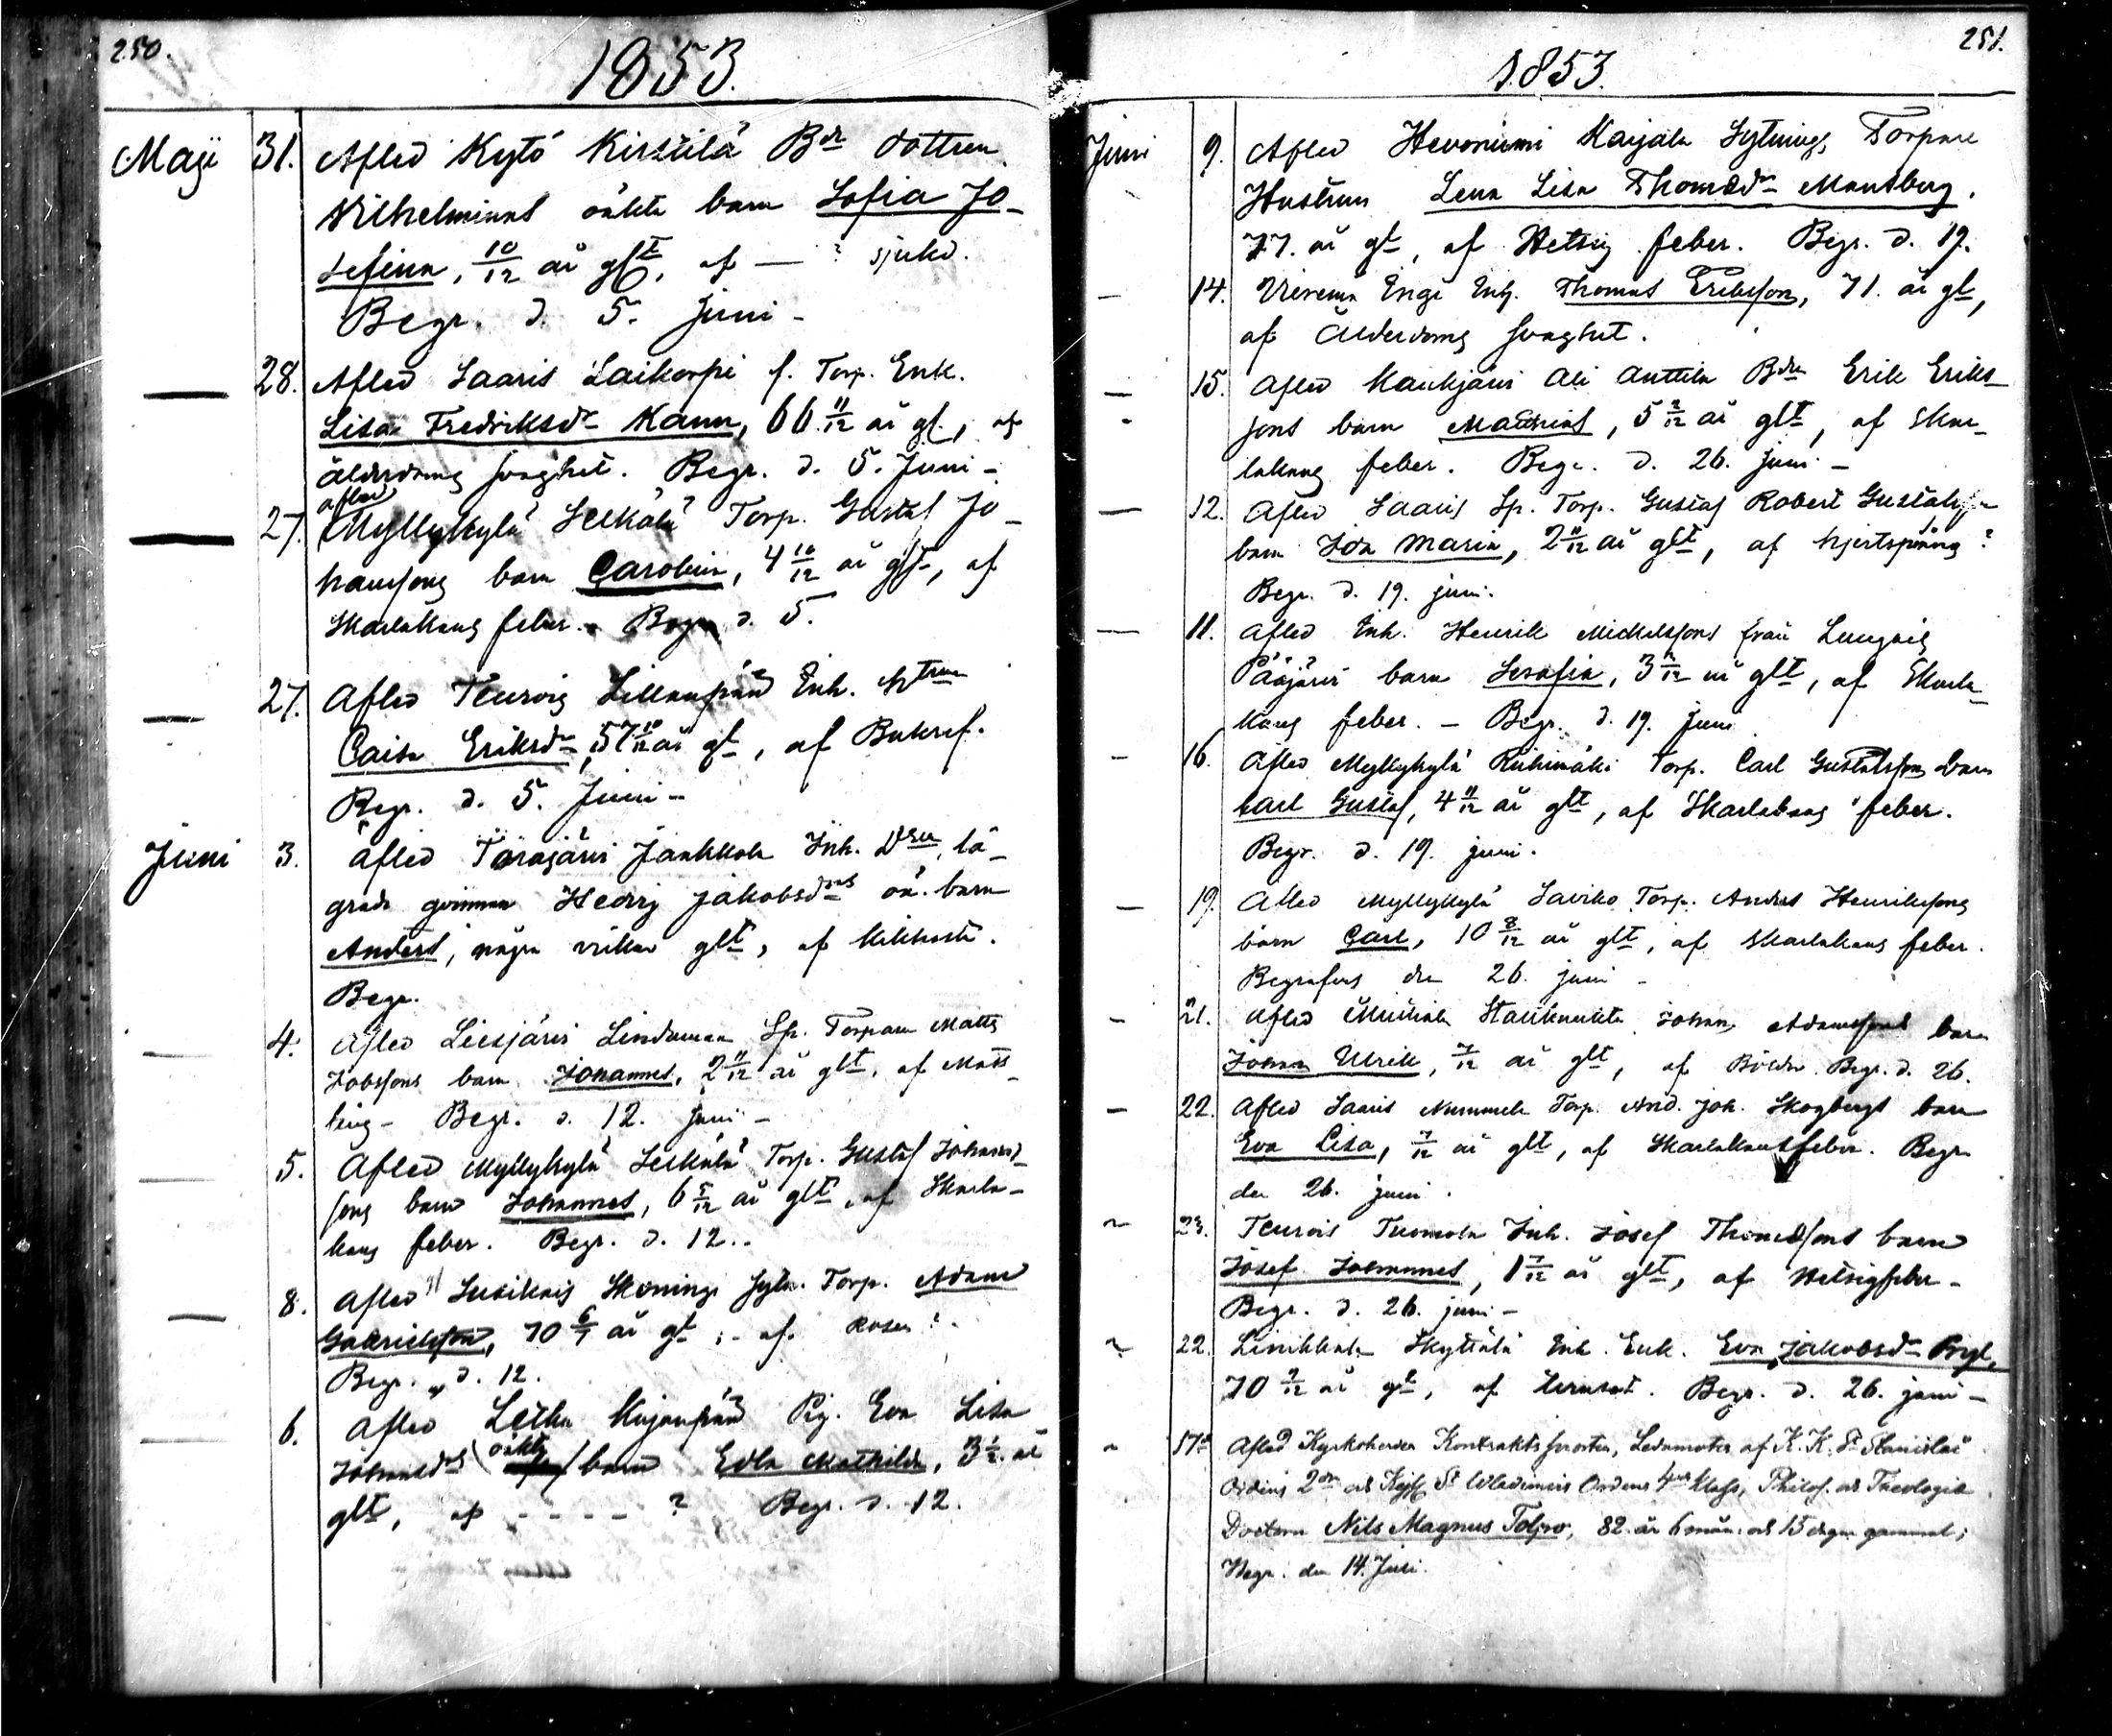 250.
1853.
Maji 31. Afled Kytö Kirstilä Bde dottren
Wilhelminas oäkta barn Sofia Jo-
sefina, 10/12 år glt, af — ? sjukd.
Begr. d. 5. Juni -
— 28. Afled Saaris Laikorpi f. Torp. Enk.
Lisa Fredriksdr Kann, 66 11/12 år gl., af
ålderdoms svaghet. Begr. d. 5. Juni -
— 27. afled Myllykylä Seikälä Torp. Gustaf Jo-
hanssons barn Carolina, 4 10/12 år glt, af
Skarlakans feber. Begr. d. 5.
— 27. Afled Teurois Inh. Hstrun
Caisa Eriksdr, 57 10/12 år gl, af Bukref.
Begr. d. 5. Juni -
Juni 3. Afled Torajärvi Jaakkola Inh. lä-
grade qvinnan Hedvig Jakobsdrs oä. barn
Anders, några veckor glt, af kikhosta.
Begr.
— 4. Afled Liesjärvi Lindaman Sp. Torpare Matts
Jobssons barn Johannes, 2 11/12 år glt, af Mäss-
ling - Begr. d. 12. Juni -
— 5. Afled Myllykylä Seikälä Torp. Gustaf Johans-
sons barn Johannes, 6 5/12 år glt, af Skarla-
kans feber. Begr. d. 12.
— 8. Afled Susikas Skomings Sytn. Torp. Adam
Gabrielsson, 70 6/7 år gl, af Rosen?
Begr. d. 12.
— 6. Afled Letku Kujanpää Pig. Eva Lisa
Johansdrs (oäkta) barn Edla Mathilda, 3 1/2 år
glt, af - - - - ? Begr. d. 12.
251.
1853.
Juni 9. Afled Hevoniemi Karjala Sytnings Torpare
Hustrun Lena Lisa Thomasdr Mansberg.
77. år gl, af Hetsig feber. Begr. d. 19.
— 14. Inh. Thomas Eriksson, 71. år gl,
af Ålderdoms svaghet.
— 15. Afled Kaukjärvi Ali Anttila Bde Erik Eriks-
sons barn Mathias, 5 2/12 år glt, af Skar-
lakans feber. Begr. d. 26. juni -
— 12. Afled Saaris Sp. Torp. Gustaf Robert Gustafssons
barn Ida Maria, 2 11/12 år glt, af hjertspänng?
Begr. d. 19. juni.
— 11. Afled Inh. Henrik Michelssons från
Pääjärvi barn Serafia, 3 år glt, af Skarla-
kans feber. - Begr. d. 19. Juni
— 16. Afled Myllykylä Riihimäki Torp. Carl Gustafssons barn
Carl Gustaf, 4 11/12 år glt, af Skarlakans feber.
Begr. d. 19. juni.
— 19. Afled Myllykylä Saviko Torp. Anders Henrikssons
barn Carl, 10 8/12 år glt, af Skarlakans feber.
Begrafves den 26. juni -
— 21. Afled Johan Adamssons barn
Johan Ulrik, 7/12 år glt, af Begr. d. 26.
— 22. Afled Saaris Nummela Torp. And. Joh. Skogbergs barn
Eva Lisa, 7/12 år glt, af Skarlakansfeber. Begr.
den 26. juni.
~ 23. Teurois Tuomola Inh. Josef Thomassons barn
Josef Johannes, 1 7/12 år glt, af Hetsigfeber -
Begr. d. 26. juni -
~ 22. Linikkala Skyttälä Inh. Enk. Eva Jakobsdr Pryl,
70 9/12 år gl, af Begr. d. 26. juni -
~ 17de Afled Kyrkoherden Kontraktsprosten, Ledamoten af K. K. St Stanislai
Ordens 2dra och Kejs. St Wladimirs Ordens 4de Klass, Philos. och Theologie
Doctorn Nils Magnus Tolpo, 82 år 6 mån. och 15 dagar gammal;
Begr. den 14. Juli.